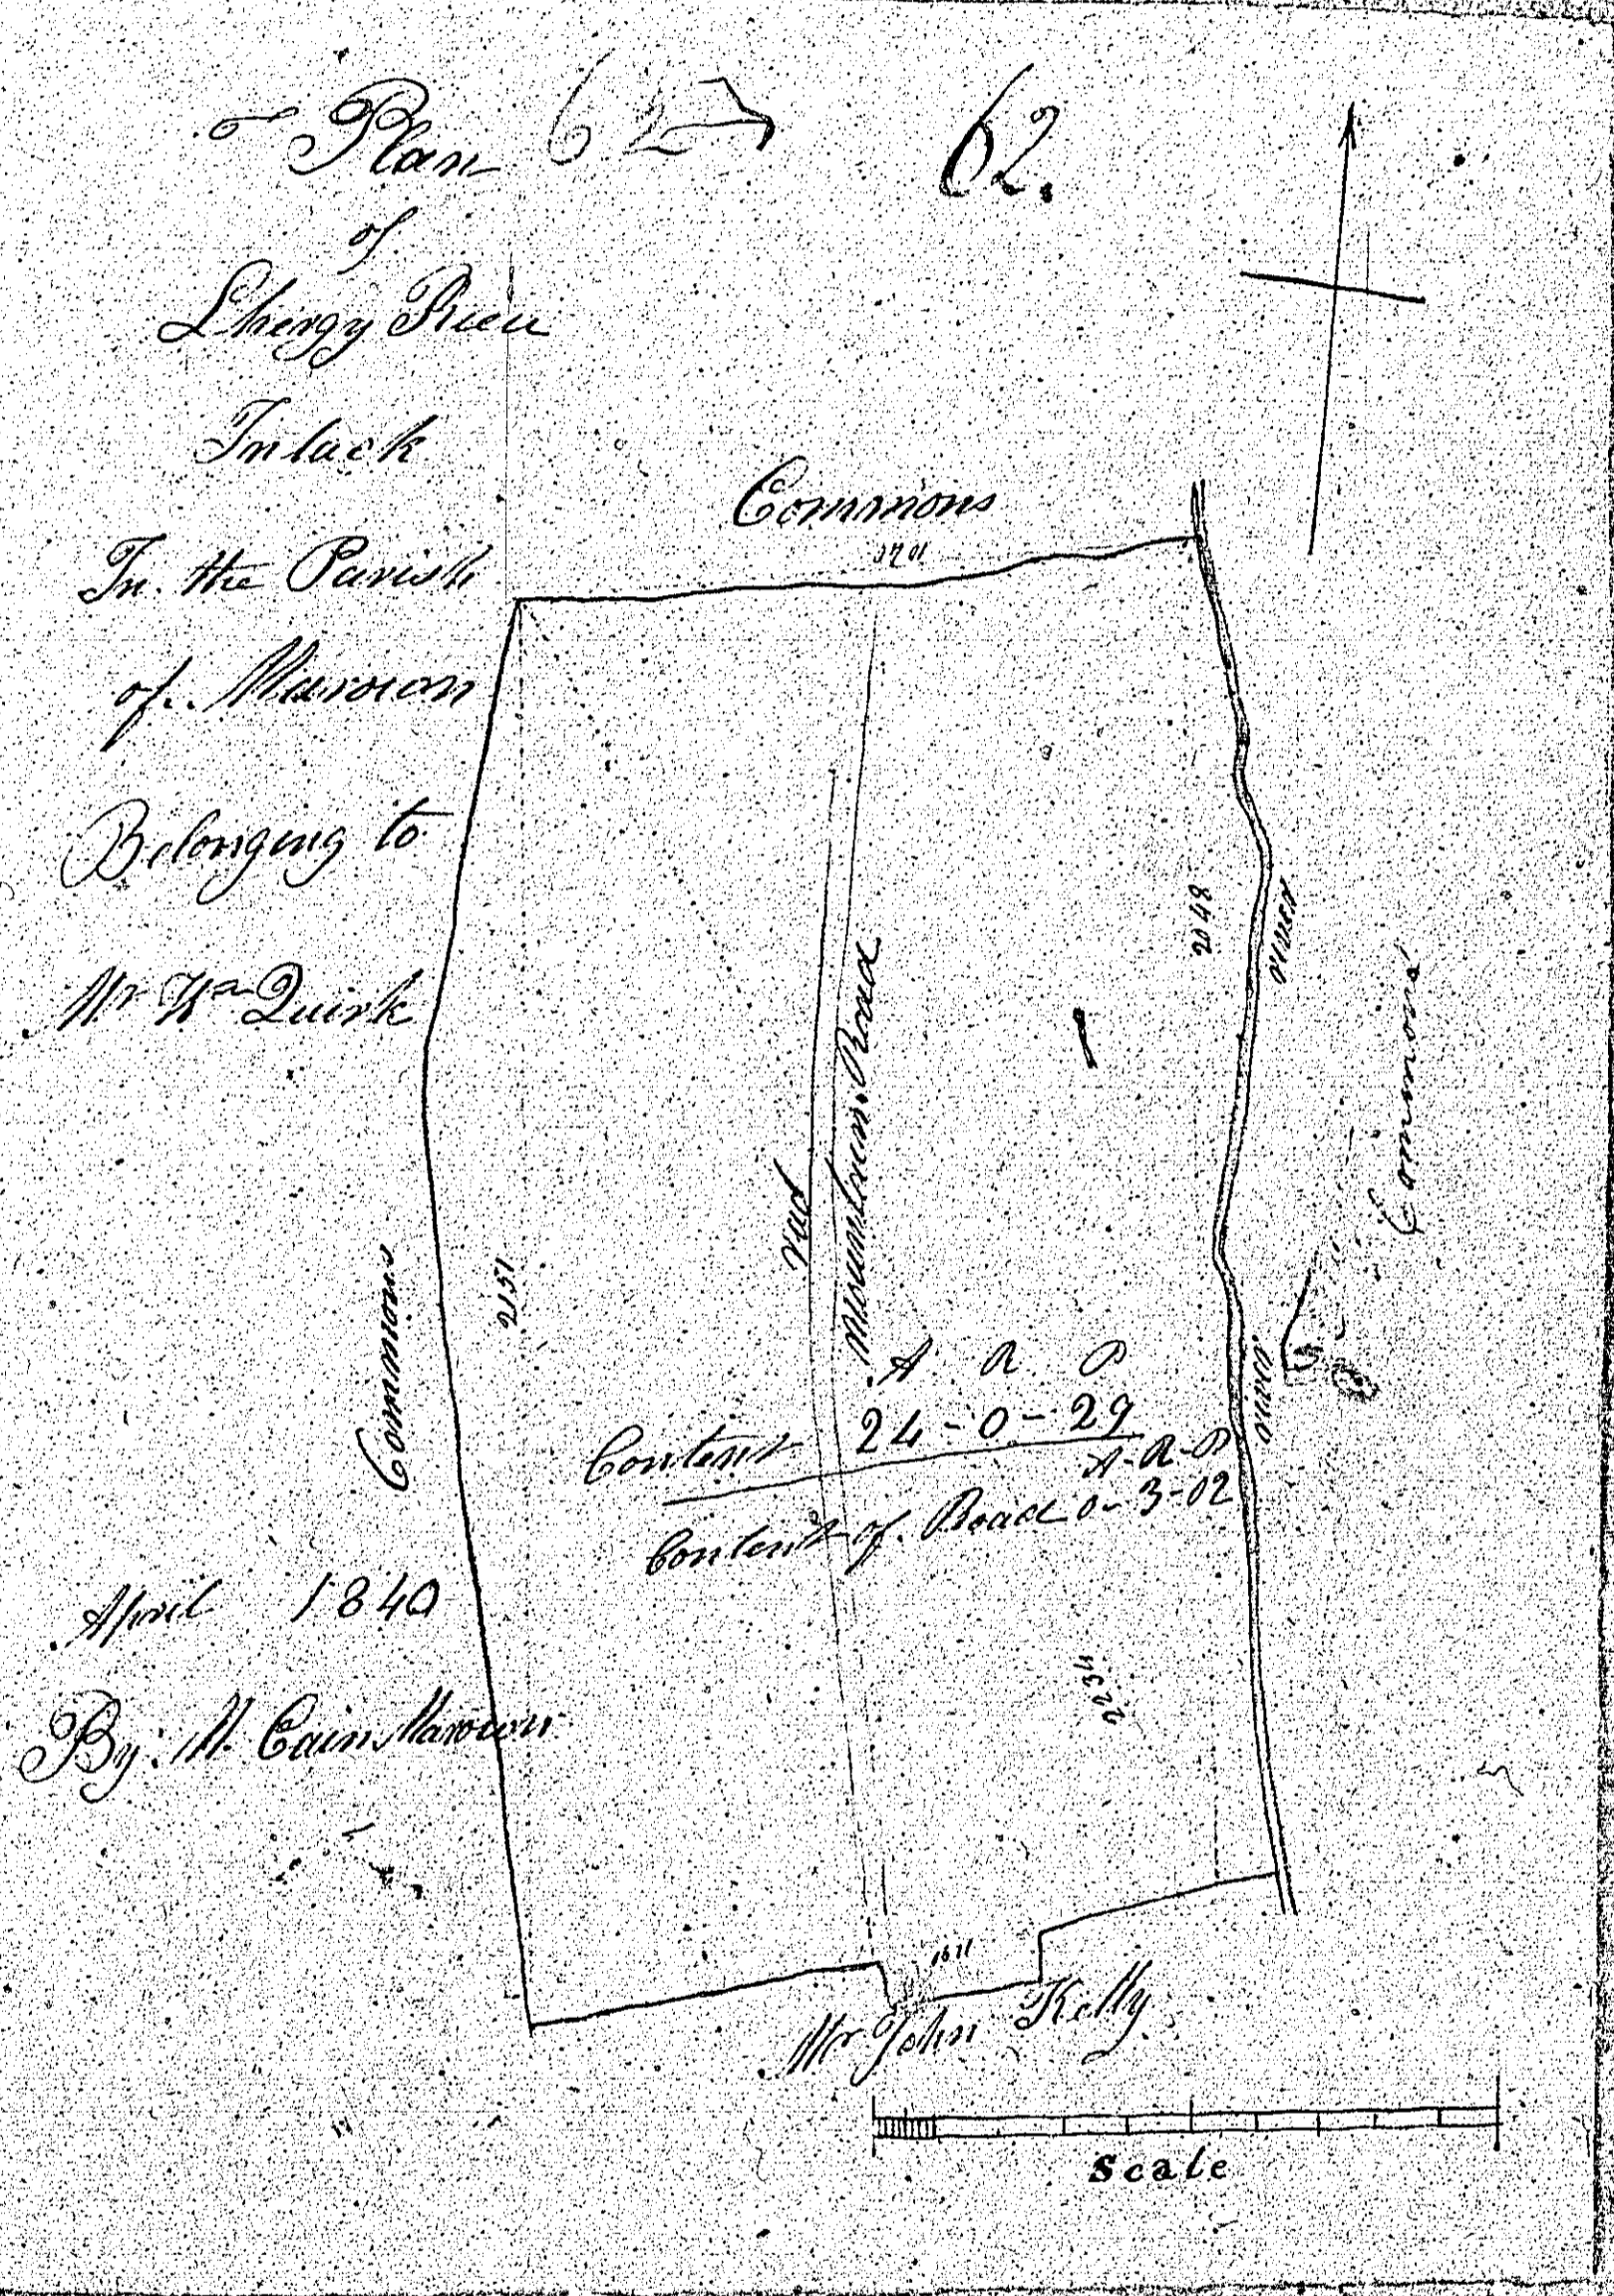 a Plan 62
62.
of
Lhergy Rieu
Intack
In. the Parish
of. Marown
Belonging to
Mr Wm Quirk
April 1840
By. M. Cain Marown
Commons
Commons
2151
Road
Mountain Road
2048
River
Commons
River
A R P
Content 24-0-29
A-R-P
Content of. Road 0-3-02
2234
Mr John Kelly
Scale